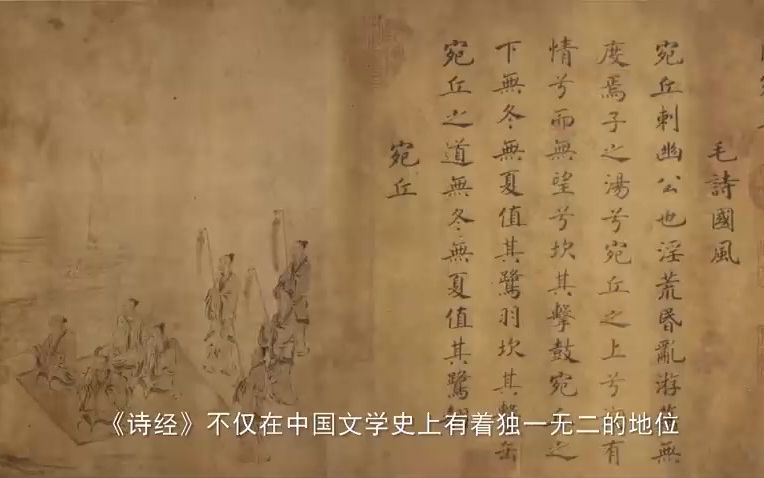 毛詩國風
宛丘刺幽公也淫荒昏亂游
無
度焉子之湯兮宛丘之上兮
有
情兮而無望兮坎其擊鼓宛
之
下無冬無夏值其鷺羽坎其
缶
宛丘之道無冬無夏值其鷺
宛丘
《诗经》不仅在中国文学史上有着独一无二的地位